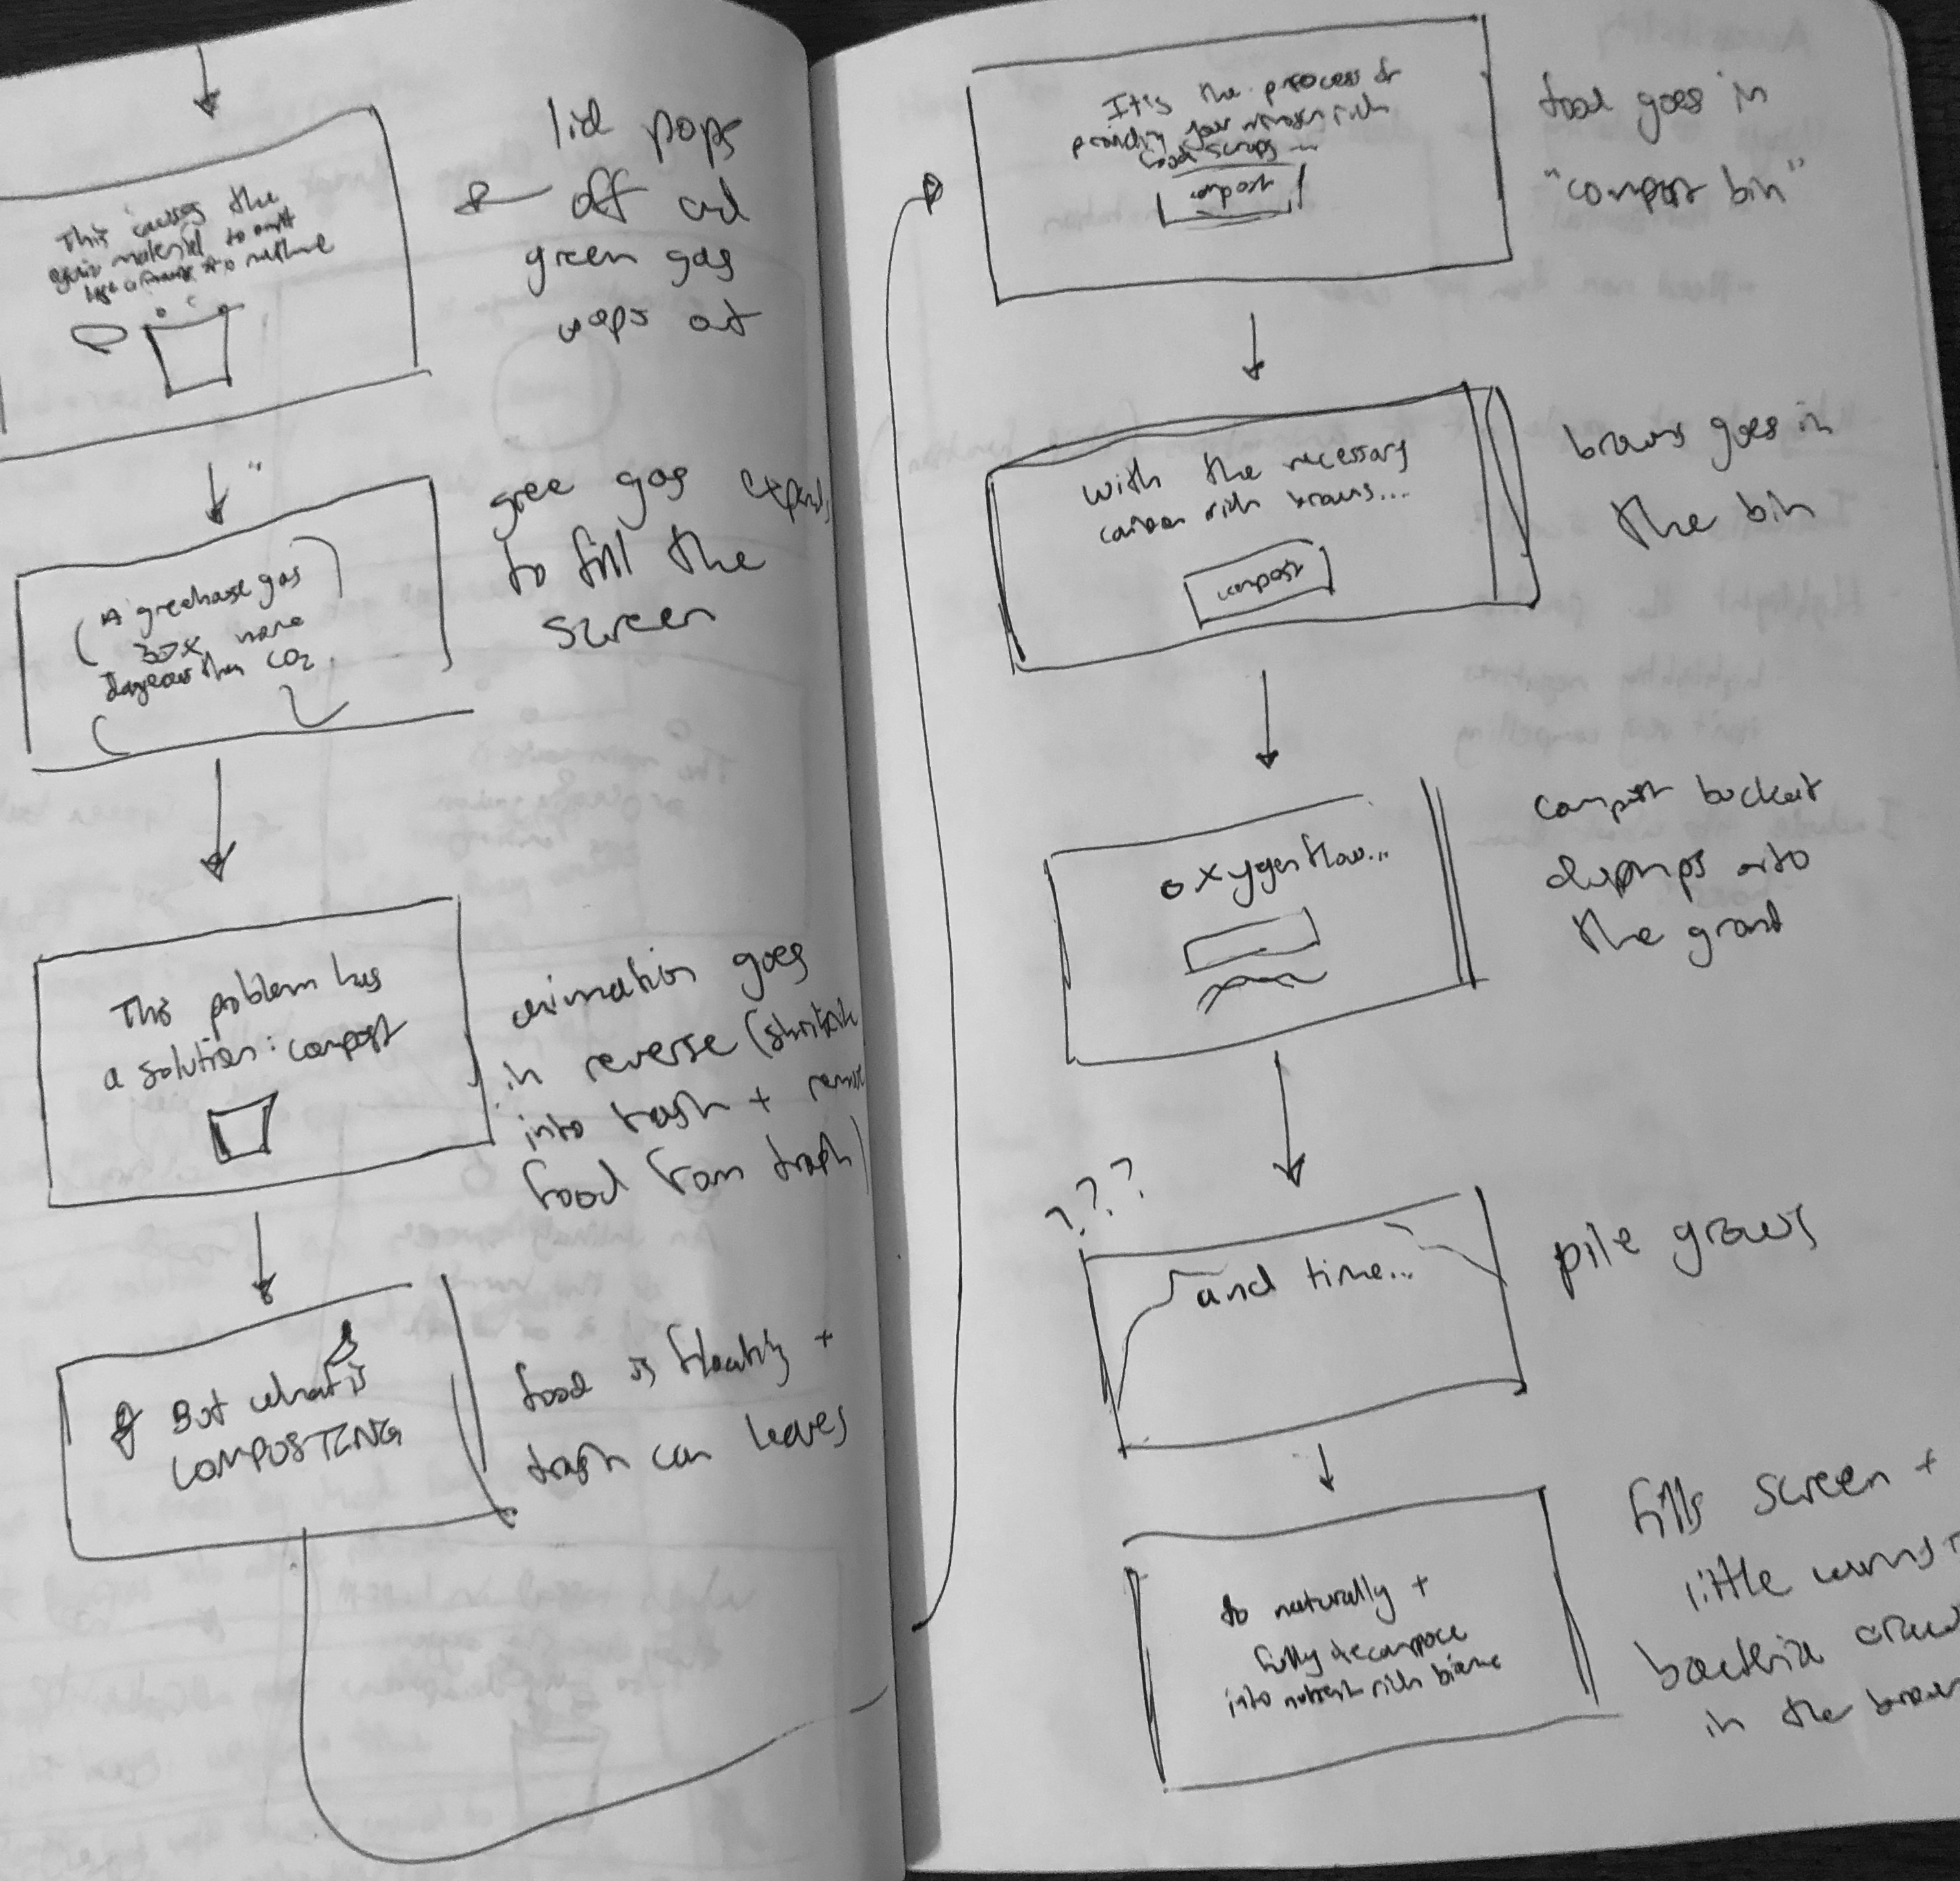 This causes the
material to emit
methane
lid pops
off and
green gas
out
A greenhouse gas
30x more
dangerous than CO2
gree gas expands
to fill the
screen
This problem has
a solution: compost
animation goes
in reverse (shrink
into trash +
food from trash)
But what is
COMPOSTING
food is floating +
trash can leaves
It's the process of
providing your nitrogen rich
food scraps ...
compost
food goes in
"compost bin"
with the necessary
carbon rich browns...
compost
browns goes in
the bin
oxygen flow...
compost bucket
dumps onto
the ground
???
and time...
pile grows
to naturally +
fully decompose
into nutrient rich
fills screen +
little worms +
bacteria
in the